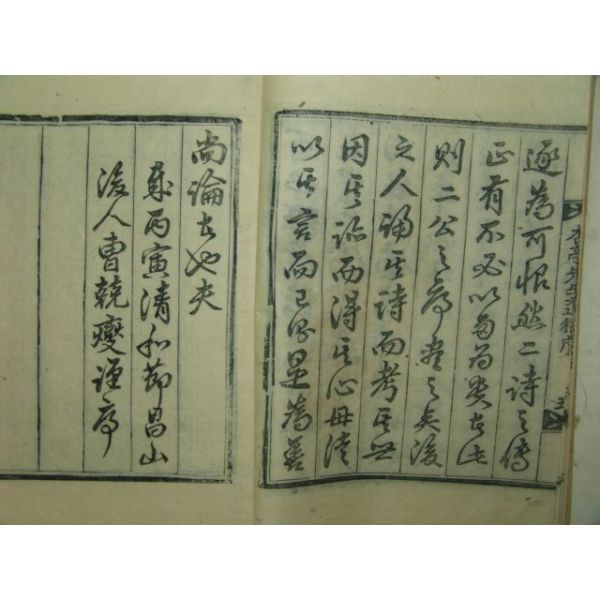 遂為可恨然二詩之傳
正有不必以多為貴者此
則二公之序盡之矣後
之人誦其詩而考其世
因其跡而得其心毋徒
以其言而已則是為善
尚論者也夫
歲丙寅清和節昌山
後人曺兢燮謹序